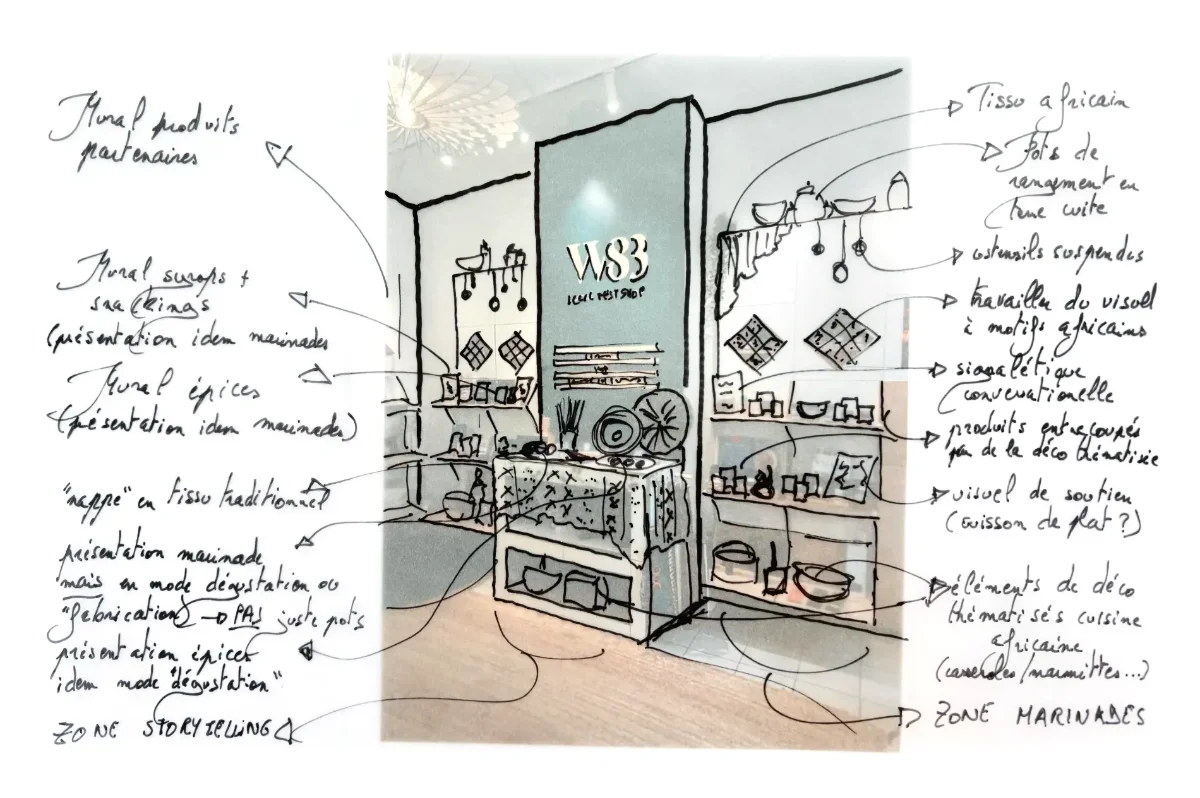 Mural produits
partenaires
Mural syrops +
snackings
(présentation idem marinades
Mural épices
(présentation idem marinades)
"nappe" en tissu traditionnel
présentation marinade
mais en mode dégustation ou
"fabrication" → PAS juste pots
présentation épices
idem mode "dégustation"
ZONE STORYTELLING
W83
CONCEPT SHOP
Tissu africain
Pots de
rangement en
terre cuite
ustensils suspendus
travailler du visuel
à motifs africains
signalétique
conversationelle
produits entrecoupés
par de la déco thématisée
visuel de soutien
(cuisson de plat ?)
éléments de déco
thématisés cuisine
africaine
(casseroles/marmittes...)
ZONE MARINADES